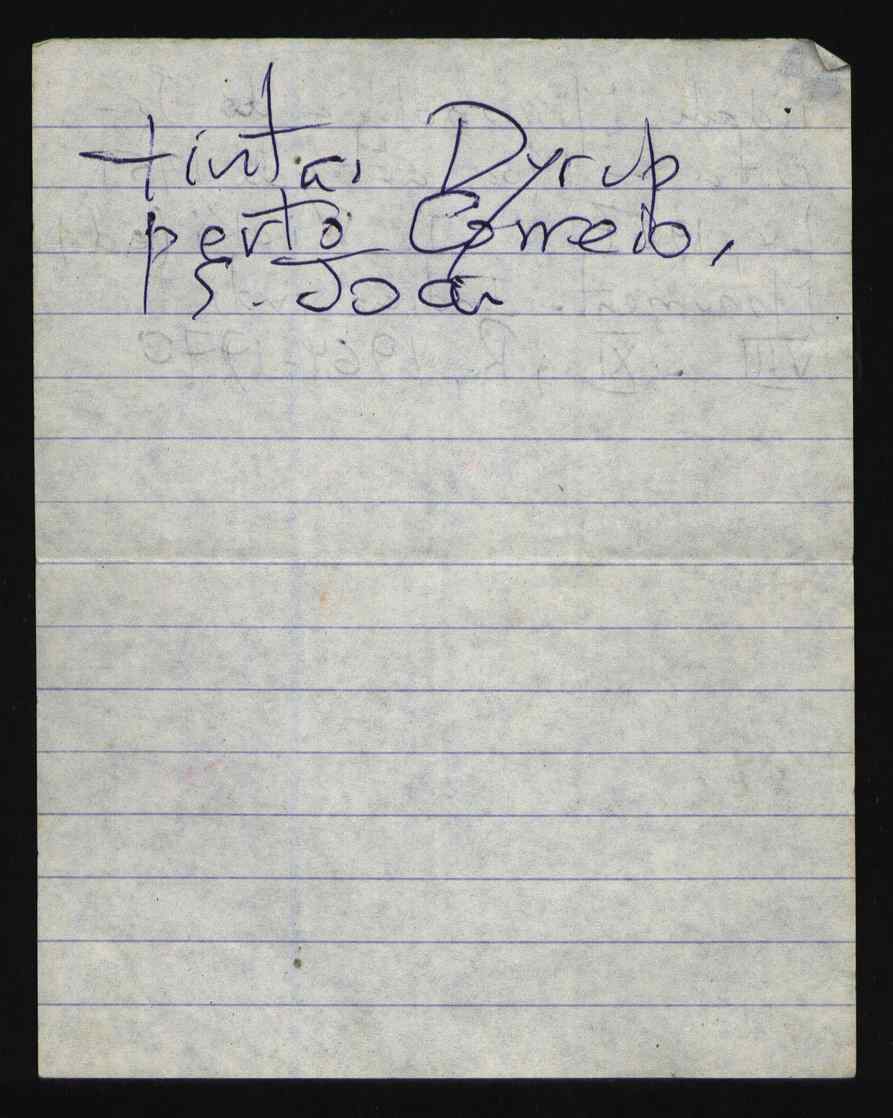 tintas Dyrup
perto Correio,
S. João